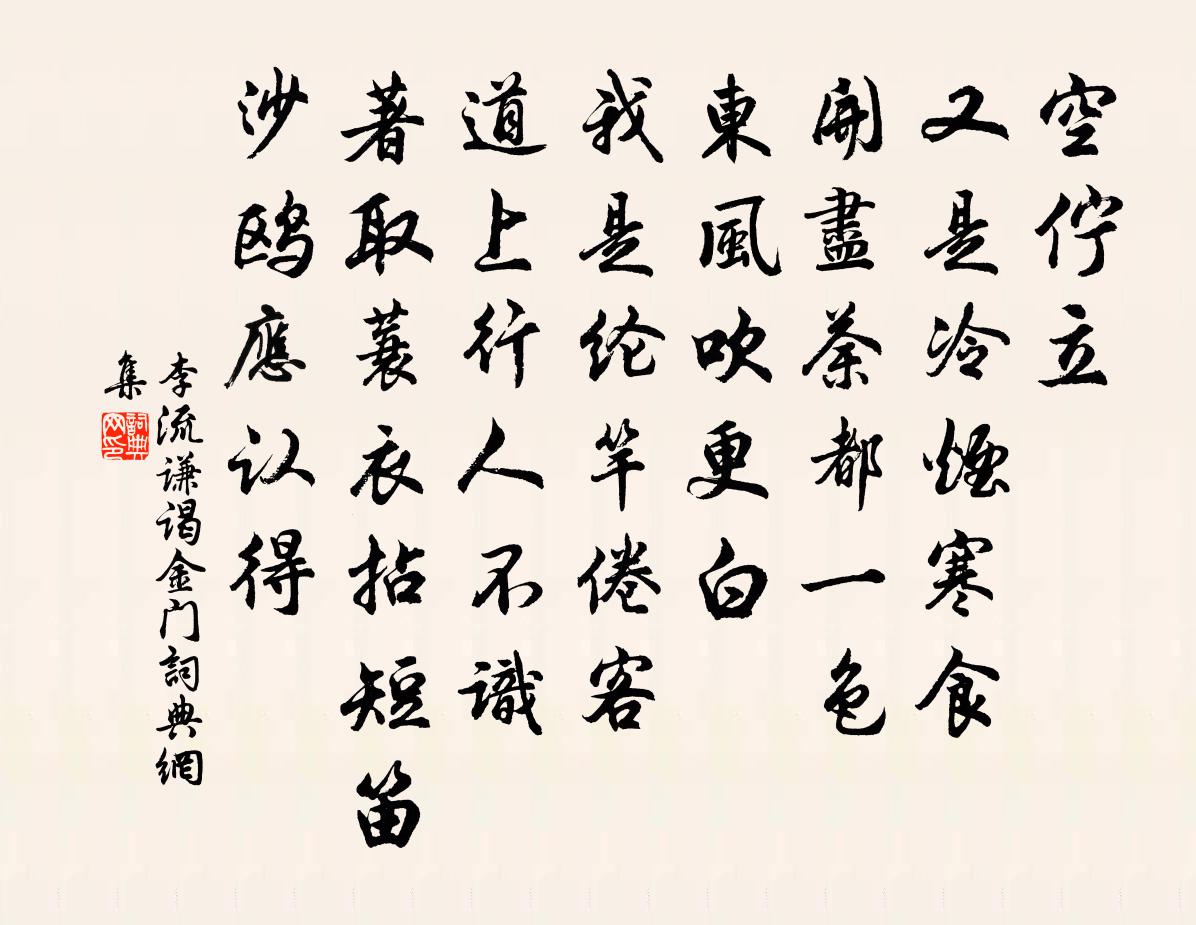 空佇立
又是冷煙寒食
開盡荼都一色
東風吹更白
我是纶竿倦客
道上行人不識
著取蓑衣拈短笛
沙鸥應认得
李流谦谒金门詞典網
集
詞典网印